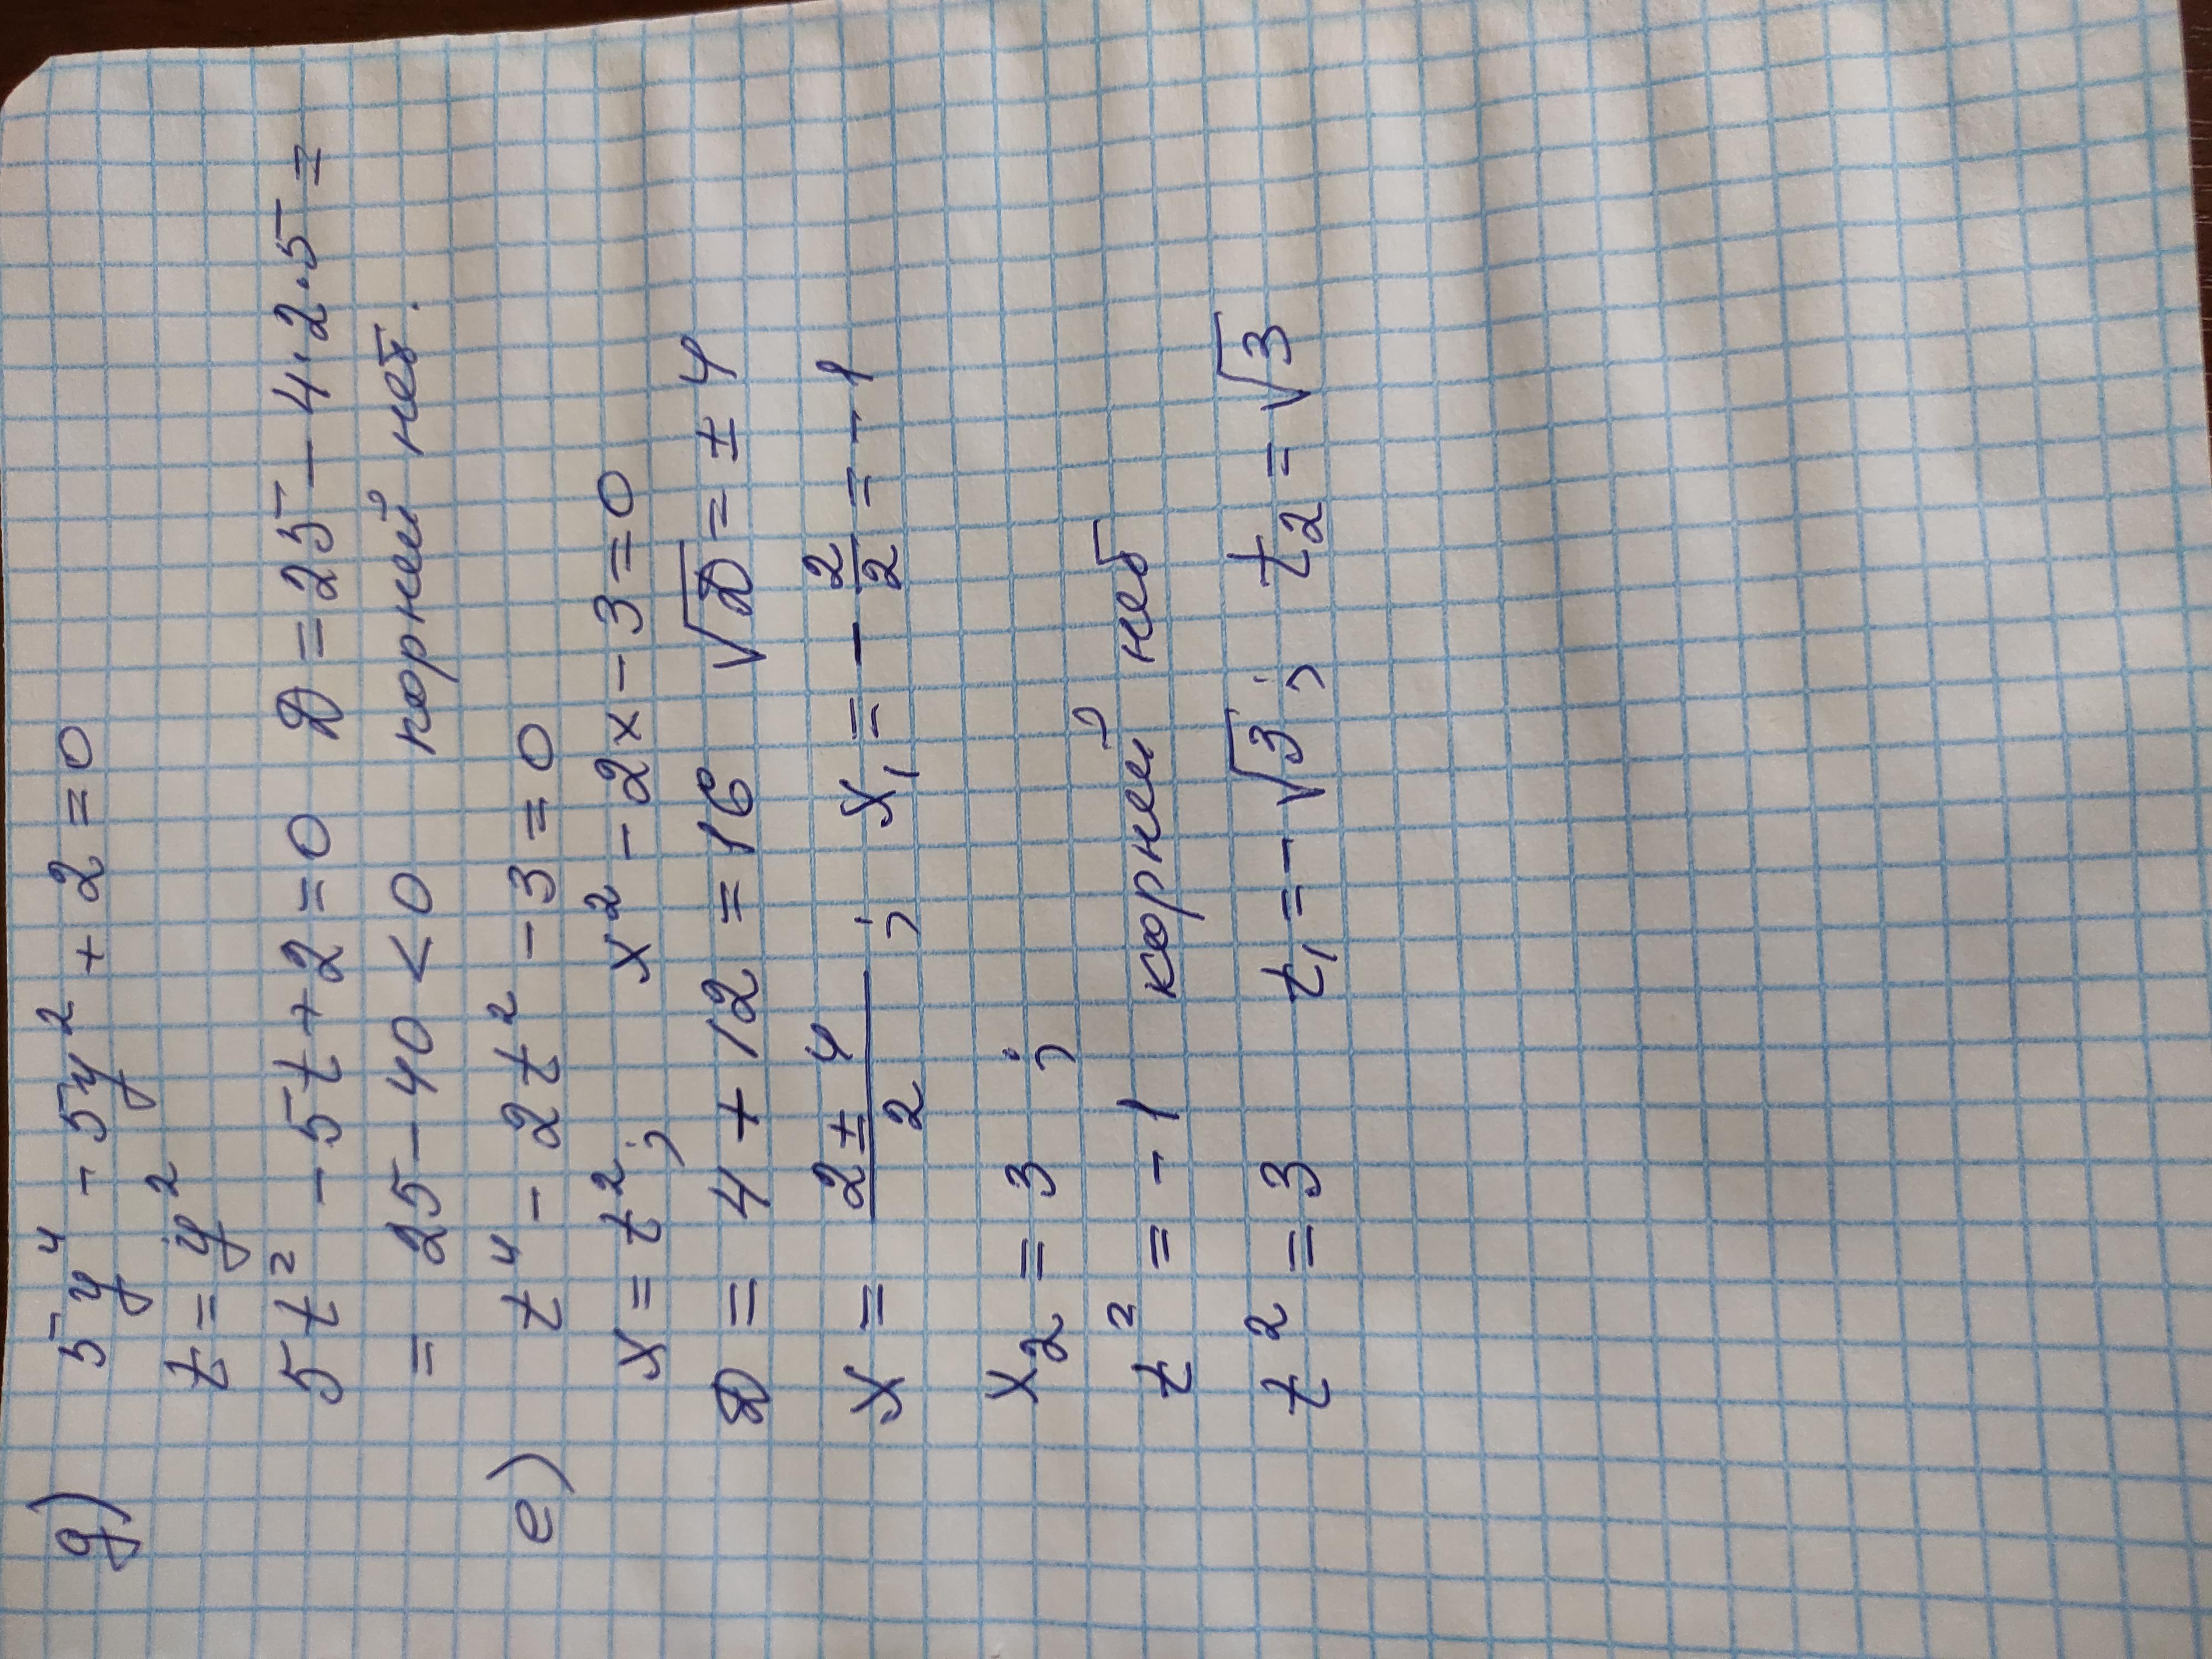 д) 5y⁴ - 5y² + 2 = 0
t = y²
5t² - 5t + 2 = 0 D = 25 - 4·2·5 =
= 25 - 40 < 0 корней нет.
е) t⁴ - 2t² - 3 = 0
x = t²; x² - 2x - 3 = 0
D = 4 + 12 = 16 √D = ± 4
x = (2 ± 4)/2; x₁ = - 2/2 = - 1
x₂ = 3;
t² = - 1 корней нет
t² = 3 t₁ = - √3; t₂ = √3